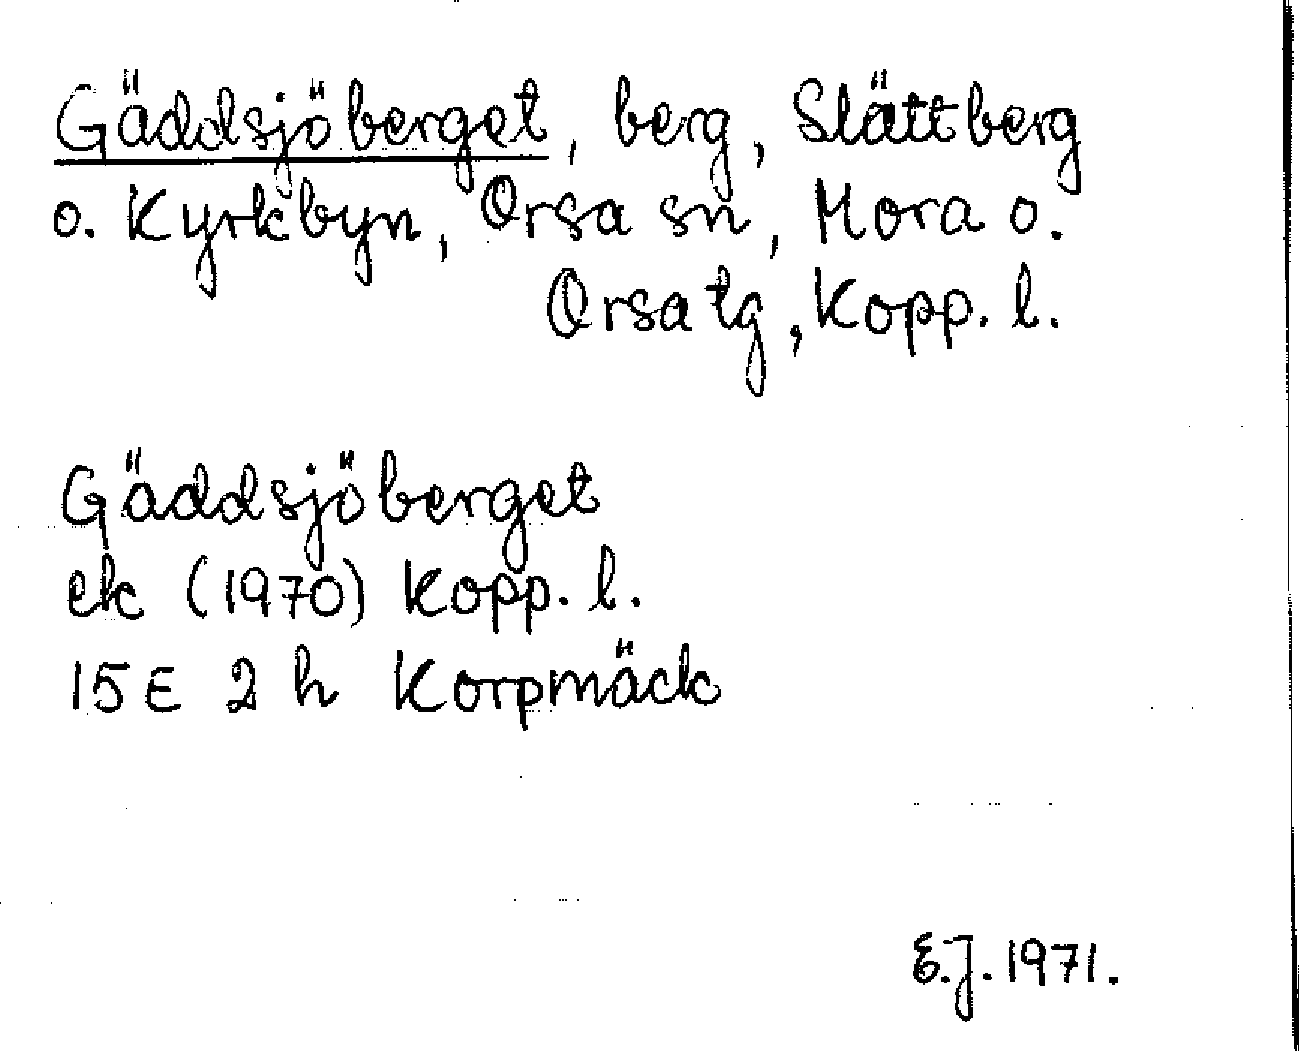 Gäddsjöberget, berg, Slättberg
o. Kyrkbyn, Orsa sn, Mora o.
Orsa tg, Kopp. l.
Gäddsjöberget
ek (1970) Kopp. l.
15E 2 h Korpmäck
E.J. 1971.